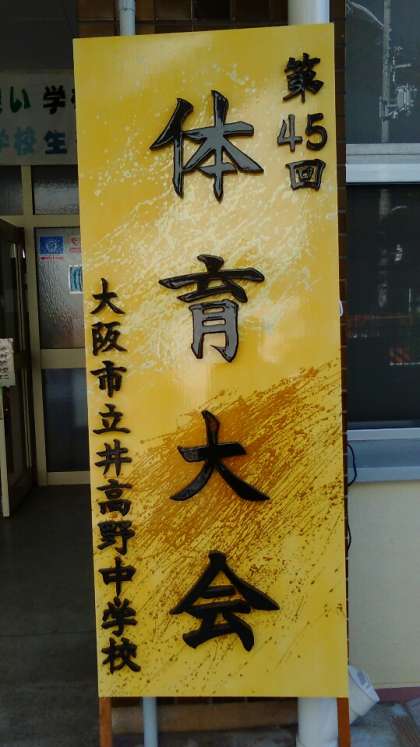 第45回
体育大会
大阪市立井高野中学校
い学
学校生